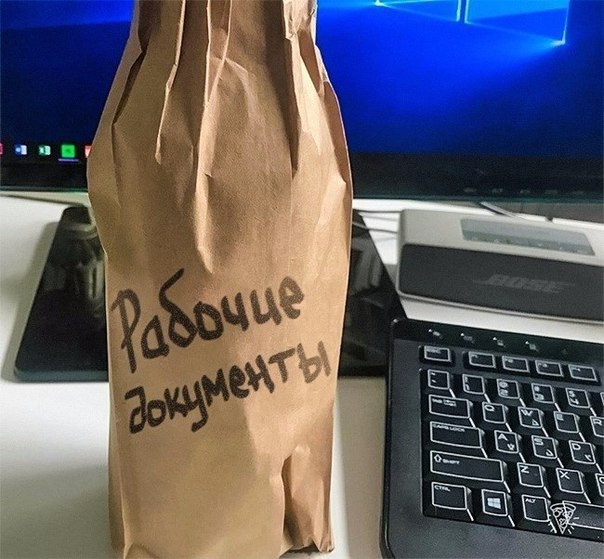 Рабочие
документы
BOSE
CAPS LOCK
SHIFT
CTRL
ALT